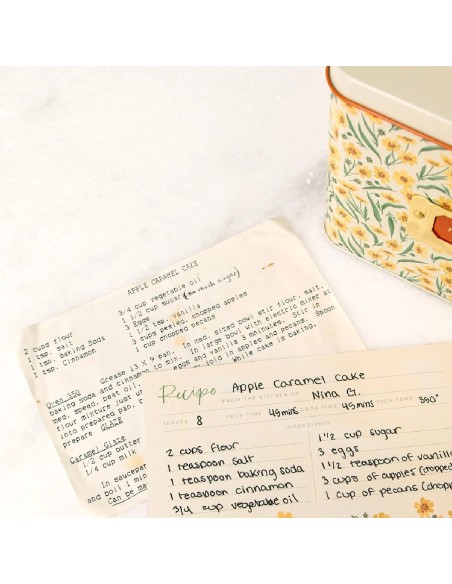 APPLE CARAMEL CAKE
2 cups flour
1 tsp. Baking Soda
1 tsp. Cinnamon
3/4 cup vegetable oil
1 1/2 cup sugar
3 Eggs
1 1/2 tsp. vanilla
3 cups peeled, chopped apples
cup chopped pecans
Oven 350
Grease 13 X 9 pan. In med. sized bowl stir flour, salt,
baking soda and cinnamon to mix. In large bowl with electric mixer at
med. speed, beat oil, eggs and vanilla 3 minutes. Stir in
flour mixture just until fold in apples and pecans. Spoon
into prepared pan. While cake is baking,
prepare GLAZE
Caramel Glaze
1/2 cup butter
1/4 cup milk
In saucepan
and boil 1 min
Can be
Recipe Apple Caramel Cake
FROM THE KITCHEN OF Nina G.
SERVES 8 PREP TIME 45mins COOK TIME 45mins OVEN TEMP 350°
INGREDIENTS
2 cups flour
1 teaspoon salt
1 teaspoon baking soda
1 teaspoon cinnamon
3/4 cup vegetable oil
1 1/2 cup sugar
3 eggs
1 1/2 teaspoon of vanilla
3 cups of apples (chopped
1 cup of pecans (chopp